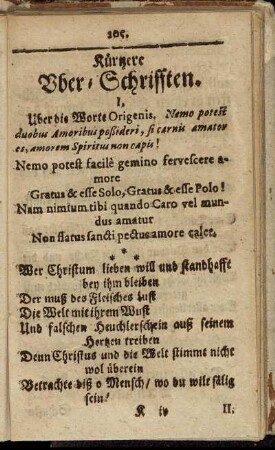 205.
Kürtzere
Vber-Schrifften.
I,
Uber die Worte Origenis. Nemo potest
duobus Amoribus possideri, si carnis amator
es, amorem Spiritus non capis!
Nemo potest facilè gemino fervescere a-
more
Gratus & esse Solo, Gratus & esse Polo!
Nam nimium tibi quando Caro vel mun-
dus amatur
Non flatus sancti pectus amore calet.
* * *
Wer Christum lieben will und standhafft
bey ihm bleiben
Der muß des Fleisches Lust
Die Welt mit ihrem Wust
Und falschen Heuchlerschein auß seinem
Hertzen treiben
Denn Christus und die Welt stimmt nicht
wol überein
Betrachte diß o Mensch/ wo du wilt sälig
sein!
K iv II.